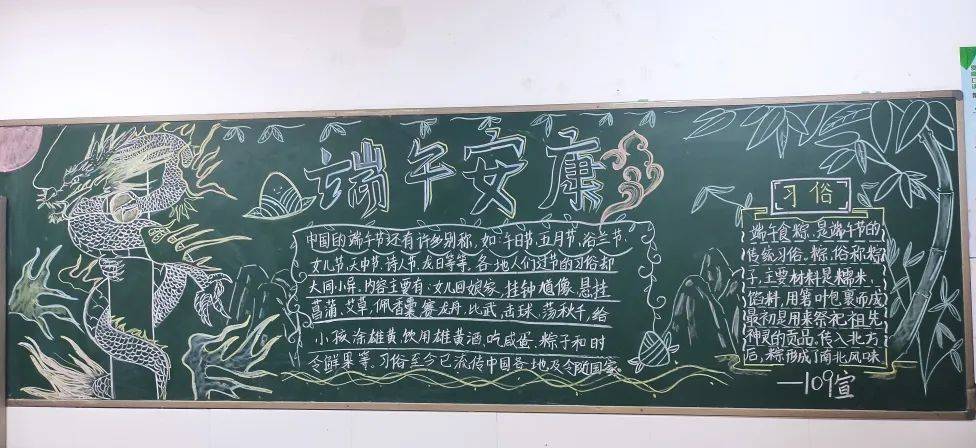 端午安康
中国的端午节还有许多别称,如:午日节、五月节、浴兰节、
女儿节、天中节、诗人节、龙日等等。各地人们过节的习俗却
大同小异。内容主要有:女儿回娘家,挂钟馗像,悬挂
菖蒲、艾草,佩香囊,赛龙舟,比武,击球,荡秋千,给
小孩涂雄黄,饮用雄黄酒,吃咸蛋、粽子和时
令鲜果等。习俗至今已流传中国各地及邻国家。
习俗
端午食粽,是端午节的
传统习俗。粽,俗称粽
子,主要材料是糯米、
馅料,用箬叶包裹而成
最初是用来祭祀祖先
神灵的贡品。传入北方
后,粽形成了南北风味
—109宣